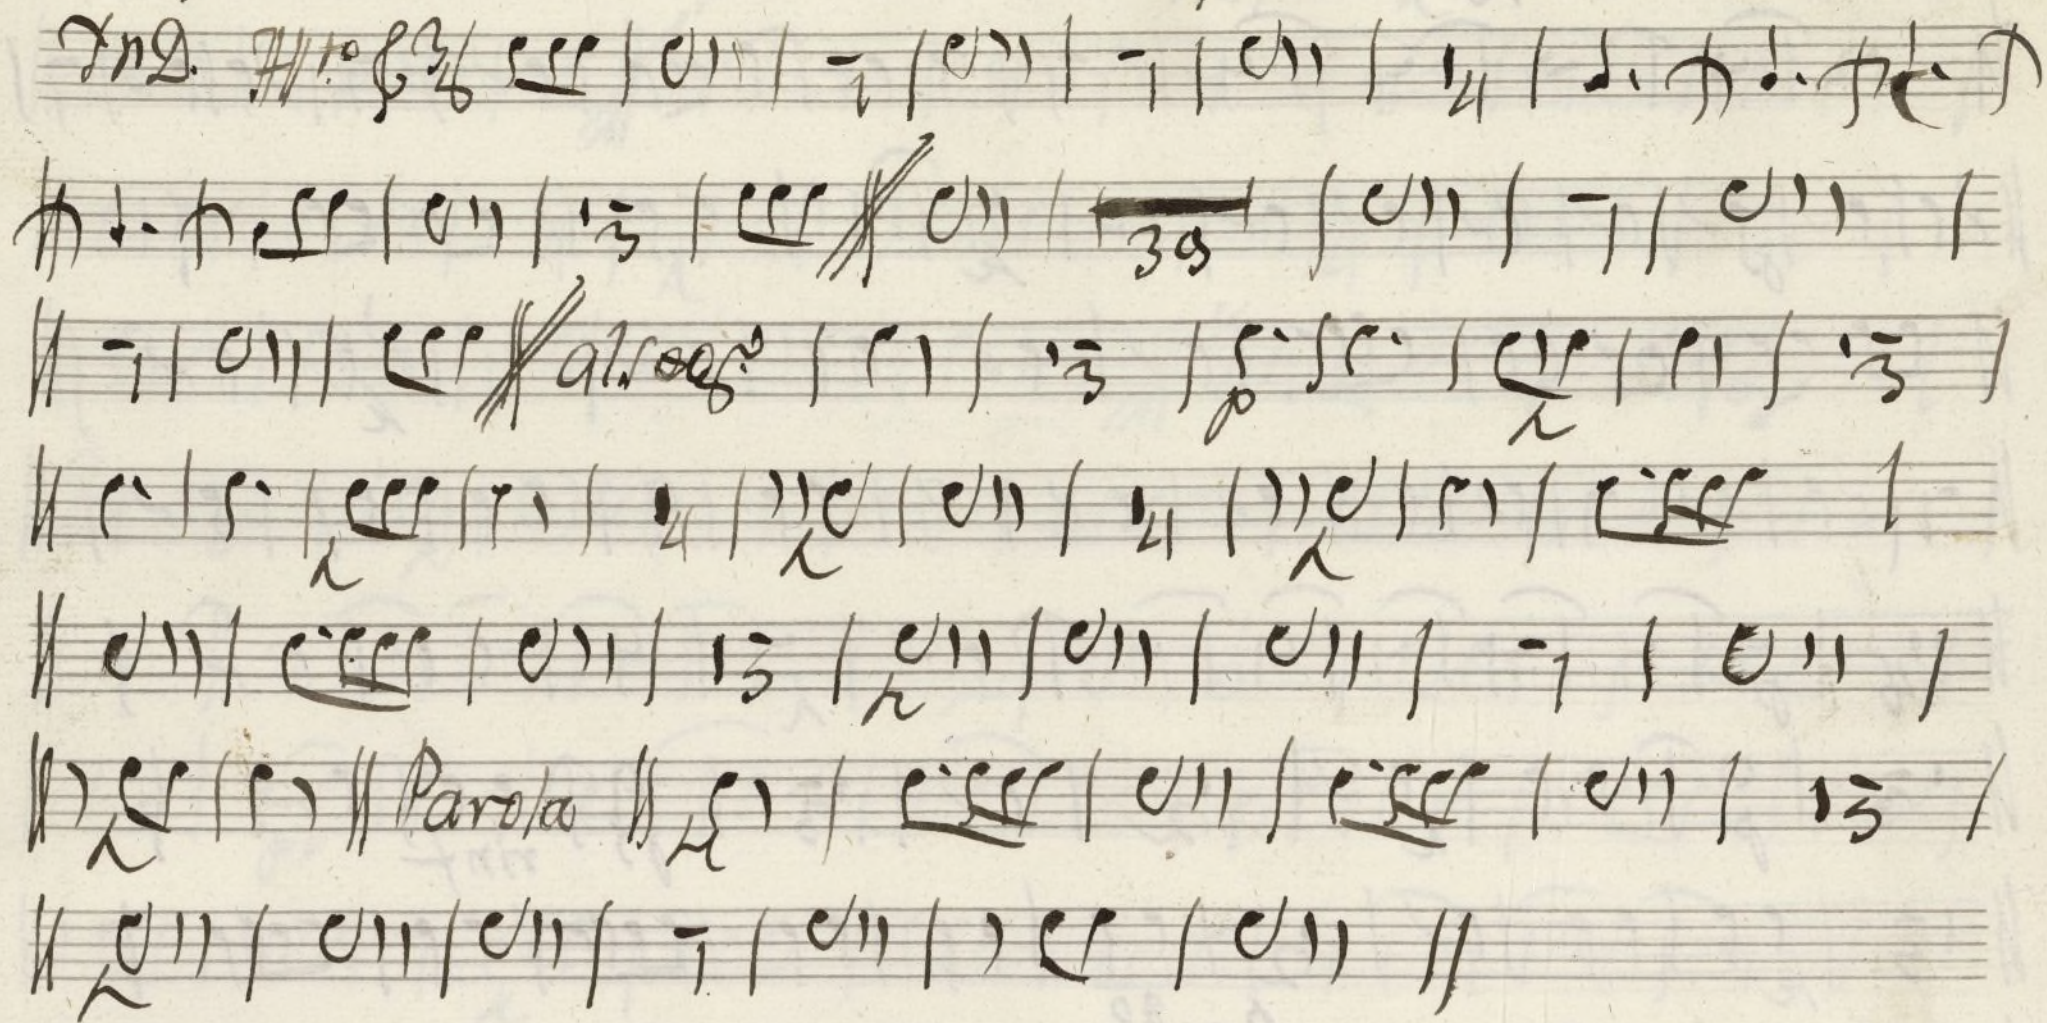 In D. All.to 3/8 1 1 4
3 39 1
1 al segno 3 p 3
4 4
3 1
Parola 3
1